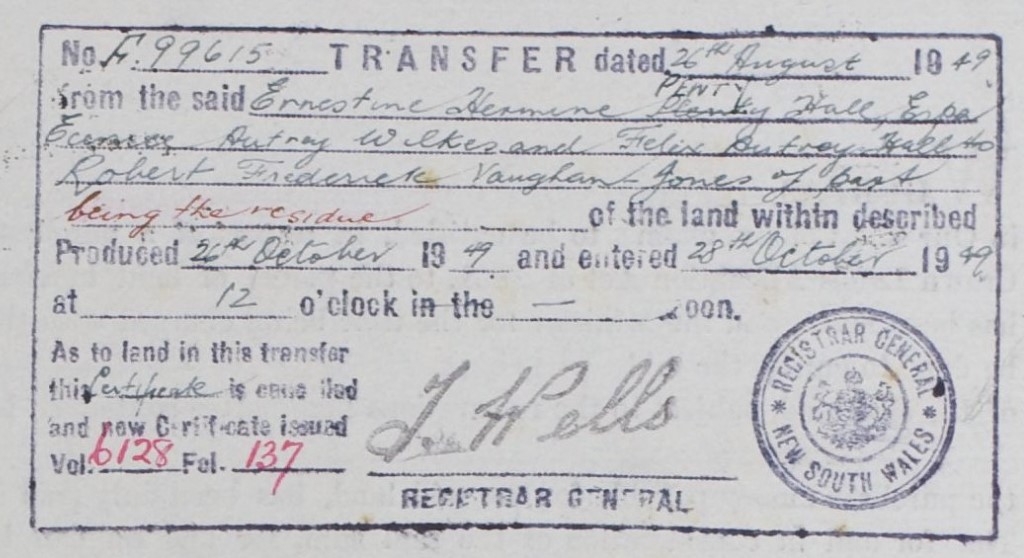 No. F.99615 TRANSFER dated 26th August 1949
from the said Ernestine Hermine PENTY Hall, Erpa
Autrey Wilkes and Felix Autrey Hall to
Robert Frederick Vaughan Jones of part
being the residue of the land within described
Produced 26th October 1949 and entered 28th October 1949
at 12 o'clock in the — noon.
As to land in this transfer
this Certificate is cancelled
and new Certificate issued
Vol. 6128 Fol. 137
J. Wells
REGISTRAR GENERAL
REGISTRAR GENERAL
NEW SOUTH WALES